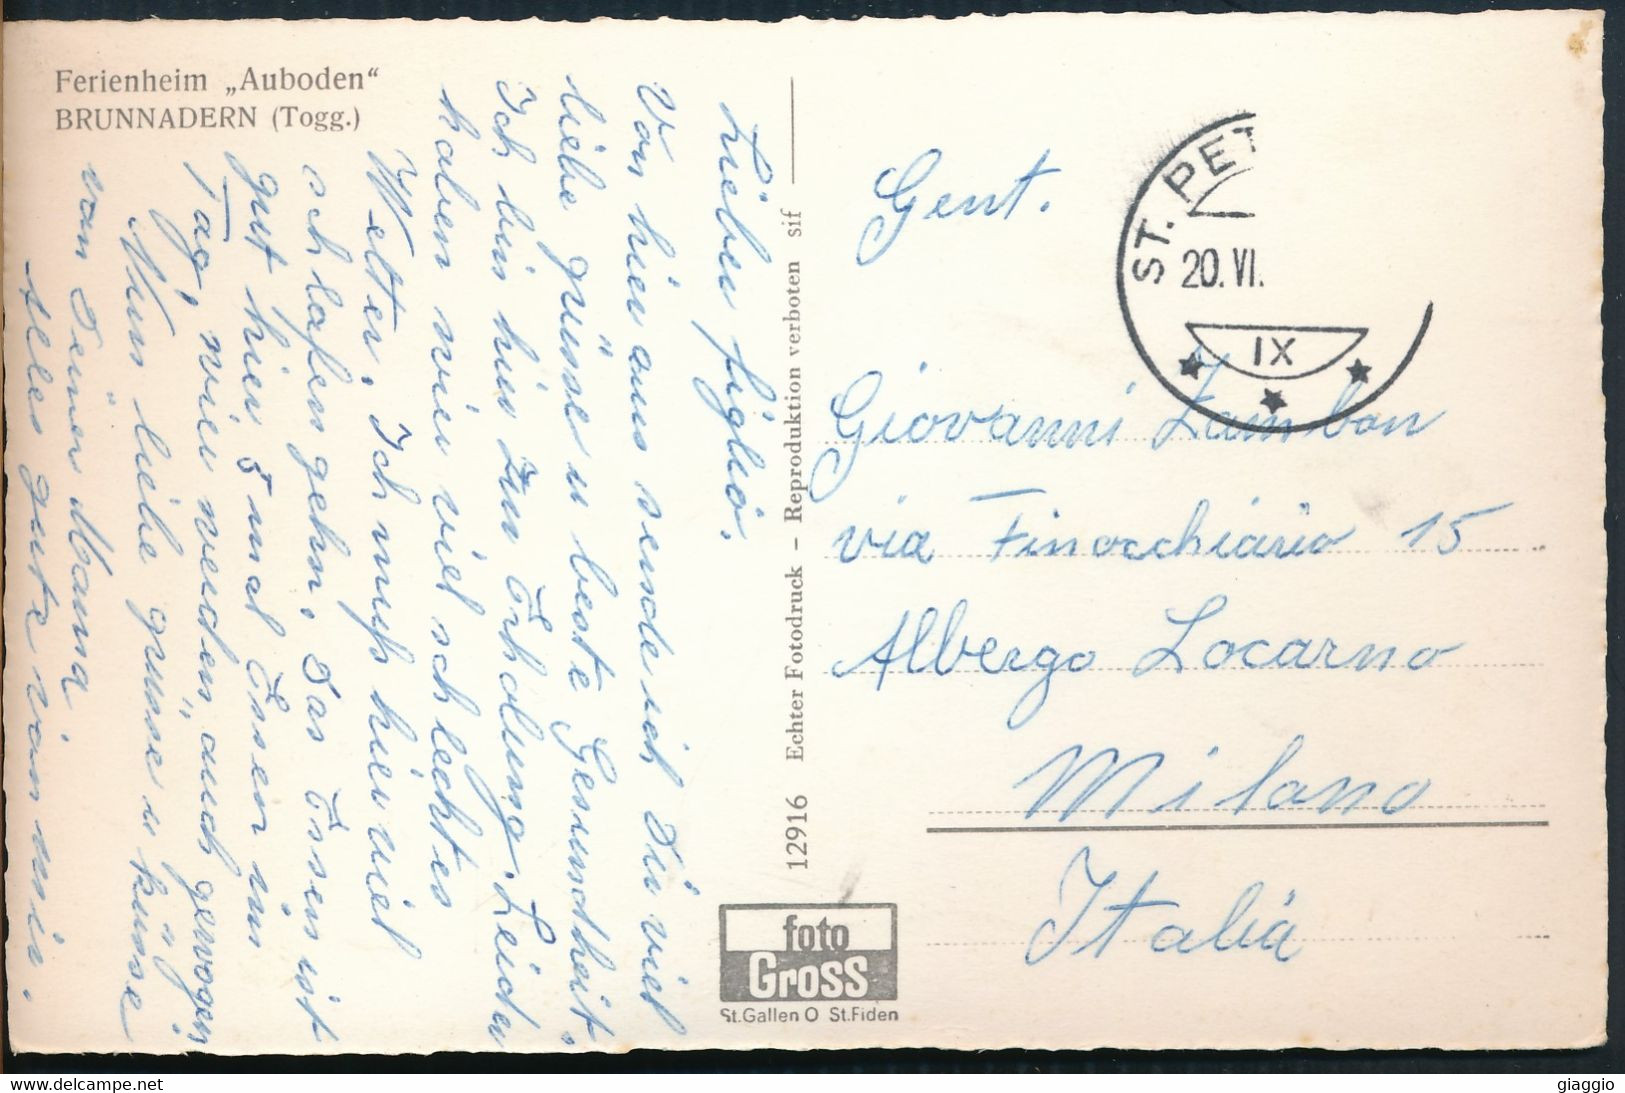 Ferienheim „Auboden“
BRUNNADERN (Togg.)
Lieber figlio.
Von hier aus sende ich Dir viel
liebe grüsse u beste Gesundheit.
Ich bin hier zur Erholung. Leider
haben wir viel schlechtes
Wetter. Ich muss hier viel
schlafen gehn. Das Essen ist
gut hier 5 mal Essen im
Tag, wir werden auch gewogen.
Nun liebe grüsse u küsse
von Deiner Mama
Alles gute von mir.
12916 Echter Fotodruck – Reproduktion verboten sif
foto
Gross
St.Gallen O St.Fiden
ST. PET
20. VI.
IX
Gent.
Giovanni Zambon
via Finocchiario 15
Albergo Locarno
Milano
Italia
www.delcampe.net
giaggio